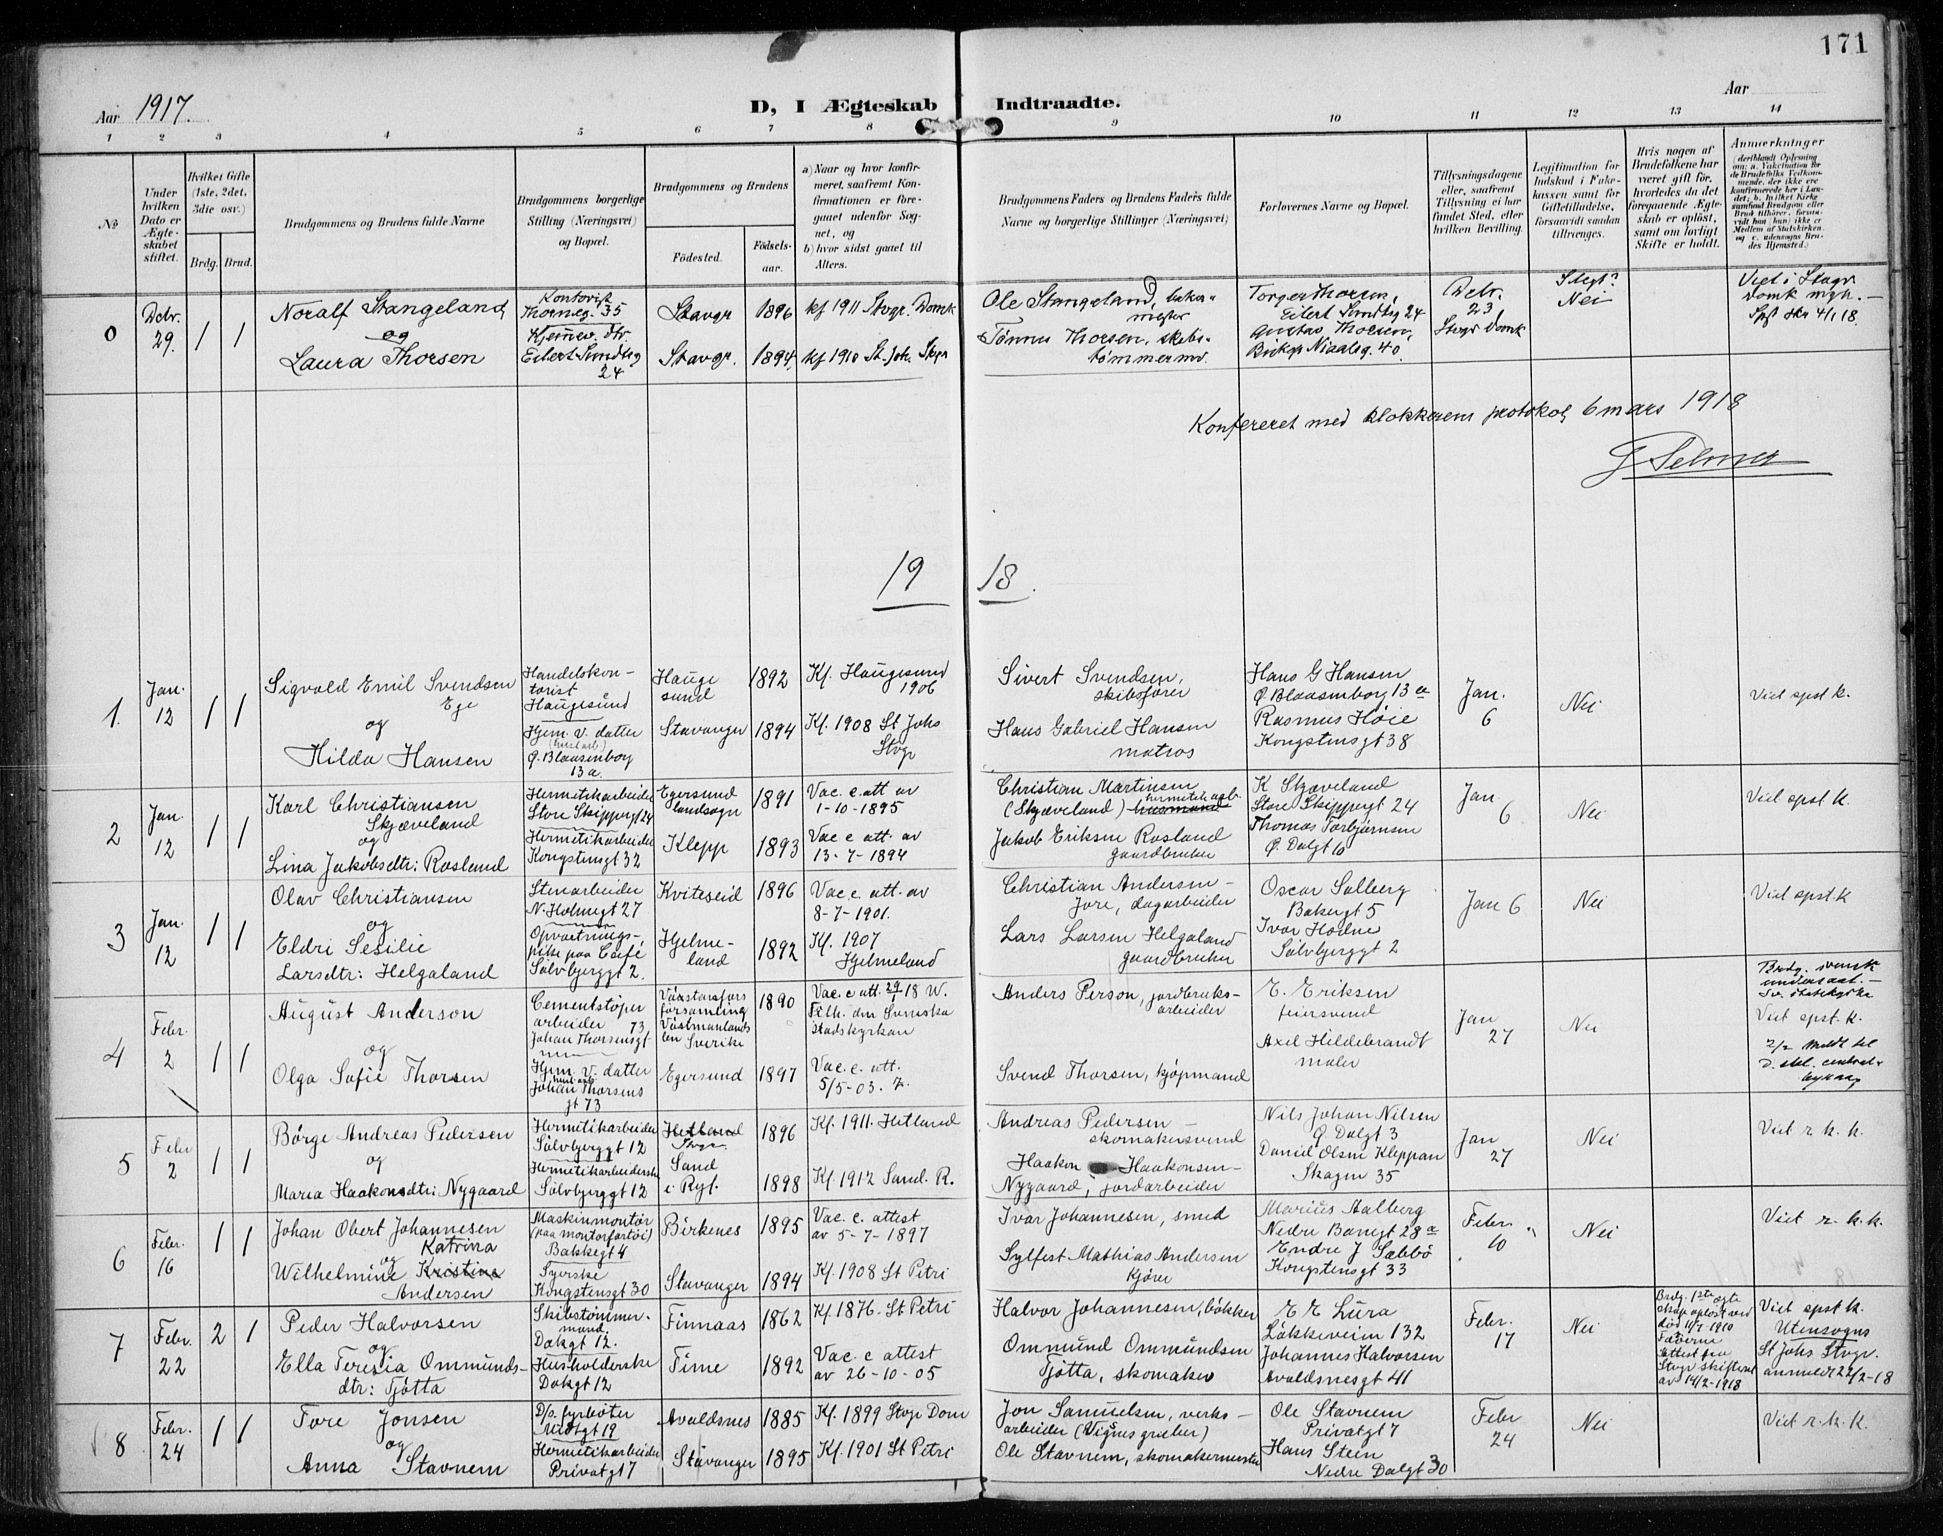 171
Aar 1917.
D, I Ægteskab Indtraadte.
Aar
1 2 3 4 5 6 7 8 9 10 11 12 13 14
No
Under hvilken Dato er Ægteskabet stiftet.
Hvilket Gifte (1ste, 2det, 3die osv.)
Brdg. Brud.
Brudgommens og Brudens fulde Navne
Brudgommens borgerlige Stilling (Næringsvei) og Bopæl.
Brudgommens og Brudens
Födested. Födselsaar.
a) Naar og hvor konfirmeret, saafremt Konfirmationen er foregaaet udenfor Sognet, og
b) hvor sidst gaaet til Alters.
Brudgommens Faders og Brudens Faders fulde Navne og borgerlige Stillinger (Næringsvei)
Forlovernes Navne og Bopæl.
Tillysningsdagene eller, saafremt Tillysning ei har fundet Sted, efter hvilken Bevilling.
Legitimation for Indskud i Enkekassen samt for Giftetilladelse, forsaavidt saadan tiltrænges.
Hvis nogen af Brudefolkene har været gift för, hvorledes da det foregaaende Ægteskab er oplöst, samt om lovligt Skifte er holdt.
Anmærkninger
(deriblandt Oplysning om: a. Vakcination for de Brudefolks Vedkommende, der ikke ere konfirmerede her i Landet; b. hvilket Kirkesamfund Brudgom eller Brud tilhörer, forsaavidt han (hun) ikke er Medlem af Statskirken, og c. udensogns Brudes Hjemsted.)
0
Decbr. 29.
1 1
Noralf Stangeland
og
Laura Thorsen
Kontorist
35
Kjemev. dtr.
Eilert Sundtsg
24
Stavgr 1896 kf 1911 Stvgr. Domk
Stavgr. 1894, kf 1910 St. Joh. Stvgr
Ole Stangeland, bakermester
Tønnes Thorsen, skibstømmermd.
Torger Thorsen, Eilert Sundtsg 24
Gustav Thorsen,
40.
Decbr. 23
Stvgr Domk
Nei
Viet i Stvgr Domk
4/1 18.
Konfereret med klokkerens protokol 6 mars 1918
19 18.
1.
Jan. 12
1 1
Sigvald Emil Svendsen
Ege
og
Hilda Hansen
Handelskontorist
Haugesund
Hjem. v. datter
Ø. Blaasenborg
13 a.
Haugesund 1892 Kf. Haugesund
1906
Stavanger 1894 Kf. 1908 St Johs
Stvgr
Sivert Svendsen,
skibsfører
Hans Gabriel Hansen
matros
Hans G Hansen
Ø. Blaasenborg 13 a
Rasmus Høie
Kongstensgt 38
Jan. 6
Nei
Viet spst k.
2
Jan. 12
1 1
Karl Christiansen
Skjæveland
og
Lina Jakobsdtr: Rosland
Hermetikarbeider
Store Skippergt 24
Hermetikarbeider
Kongstensgt 32
Egersund landsogn 1891 Vac. c. att av
1-10-1895
Klepp 1893 Vac c att. av
13-7-1894
Christian Martinsen
(Skjæveland) husmand hermetikarb.
Jakob Eriksen Rosland
gaardbruker
K Skjæveland
Store Skippergt 24
Thomas Torbjørnsen
Ø. Dalgt 10
Jan. 6
Nei
Viet spst k.
3
Jan. 12
1 1
Olav Christiansen
og
Eldri Sesilie
Larsdtr: Helgaland
Stenarbeider
N. Holmegt 27
Opvartningspike paa Café
Sølvberggt 2.
Kviteseid 1896 Vac c. att. av
8-7-1901.
Hjelmeland 1892 Kf. 1907
Hjelmeland
Christian Andersen
Jore, dagarbeider
Lars Larsen Helgaland
gaardbruker
Oscar Solberg
Bakergt 5
Ivar Hodne
Sølvberggt 2
Jan 6
Nei
Viet spst. k
4
Febr. 2
1 1
August Anderson
og
Olga Sofie Thorsen
Cementstøper
arbeider 73
Johan Thorsensgt
Hjem. v. datter
Johan Thorsens
gt 73
forsamling
Västmanlands
län Sverike 1890 Vac. c att. 29/1 18
den Svenska
stadskyrkan
Egersund 1897 Vac. c. att.
5/5-03.
Anders Person, jordbruksarbeider
Svend Thorsen, kjøpmand
E. Eriksen
feiersvend
Axel Hildebrandt
maler
Jan 27
Nei
Brdg. svensk
undersaat.
Viet spst. k.
2/2 Meldt til
5
Febr 2
1 1
Børge Andreas Pedersen
og
Maria Haakonsdtr: Nygaard
Hermetikarbeider
Sølvberggt 12
Hermetikarbeiderske
Sølvberggt 12
Hetland Stvgr. 1896 Kf. 1911. Hetland
Sand i Ryf. 1898 Kf. 1912 Sand. R.
Andreas Pedersen
skomakersvend
Haakon Haakonsen
Nygaard, jordarbeider
Nils Johan Nilsen
Ø Dalgt 3
Daniel Olsen Kleppan
Skagen 35
Jan 27
Nei
Viet r. k. k.
6
Febr. 16
1 1
Johan Obert Johannesen
Katrina
og
Wilhelmine Kristine
Andersen
Maskinmontør
(paa montørfartøi)
Bakkegt 4
Syerske
Kongstensgt 30
Birkenes 1895 Vac. c. attest
av 5-7-1897
Stavanger 1894 Kf. 1908 St Petri
Ivar Johannesen, smed
Sylfest Mathias Andersen
kjører
Marius Aalberg
Nedre Banegt 28 a
Endre J Sæbbø
Kongstensgt 33
Febr. 10
Nei
Viet r. k. k.
7
Febr. 22
2 1
Peder Halvorsen
og
Ella Teresia Ommundsdtr: Tjøtta
Skibstømmermand.
Dalsgt 12.
Husholderske
Dalsgt 12
Finnaas 1862 Kf. 1876. St Petri
Time 1892 Vac. c attest
av 26-10-05
Halvor Johannesen, bøkker
Ommund Ommundsen
Tjøtta, skomaker
E E Lura
Løkkeveien 132
Johannes Halvorsen
Avaldsnesgt 41
Febr. 17
Nei
Brdg. 1ste egteskap opløst ved
død 11/1 1910
attest fra
Stvgr skifteret
av 14/2-1918
Viet spst k.
Utensogns
St Johs Stvgr.
anmeldt 22/2-18
8
Febr. 24
1 1
Tore Jonsen
og
Anna Stavnem
D/s. fyrbøter
19
Hermetikarbeider
Privatgt 7
Avaldsnes 1885 Kf. 1899 Stvgr Dom
Stavanger 1895 Kf. 1901 St Petri
Jon Samuelsen, verksarbeider (Vignes gruber)
Ole Stavnem, skomakermester
Ole Stavnem
Privatgt 7
Hans Stein
Nedre Dalgt 30
Febr 24
Nei
Viet r. k. k.